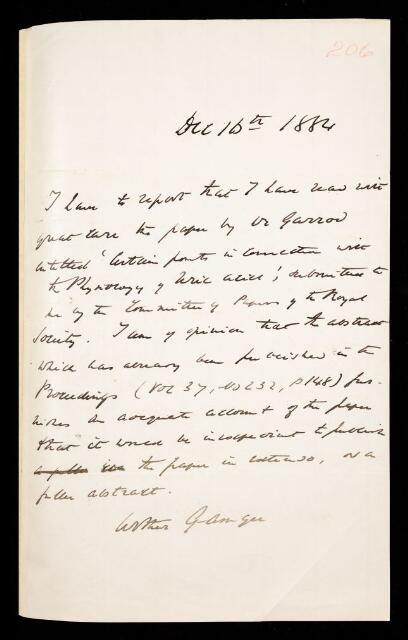 206
Dec 16th 1884
I have to report that I have read with
great care the paper by Dr Garrod
entitled 'Certain points in connection with
the Physiology of Uric acid', submitted to
me by the Committee of Papers of the Royal
Society. I am of opinion that the abstract
which has already been published in the
Proceedings (Vol 37, No 232, p 148) fur-
nishes an adequate account of the paper &
that it would be inexpedient to publish
a fuller the paper in extenso, or a
fuller abstract.
Arthur Gamgee